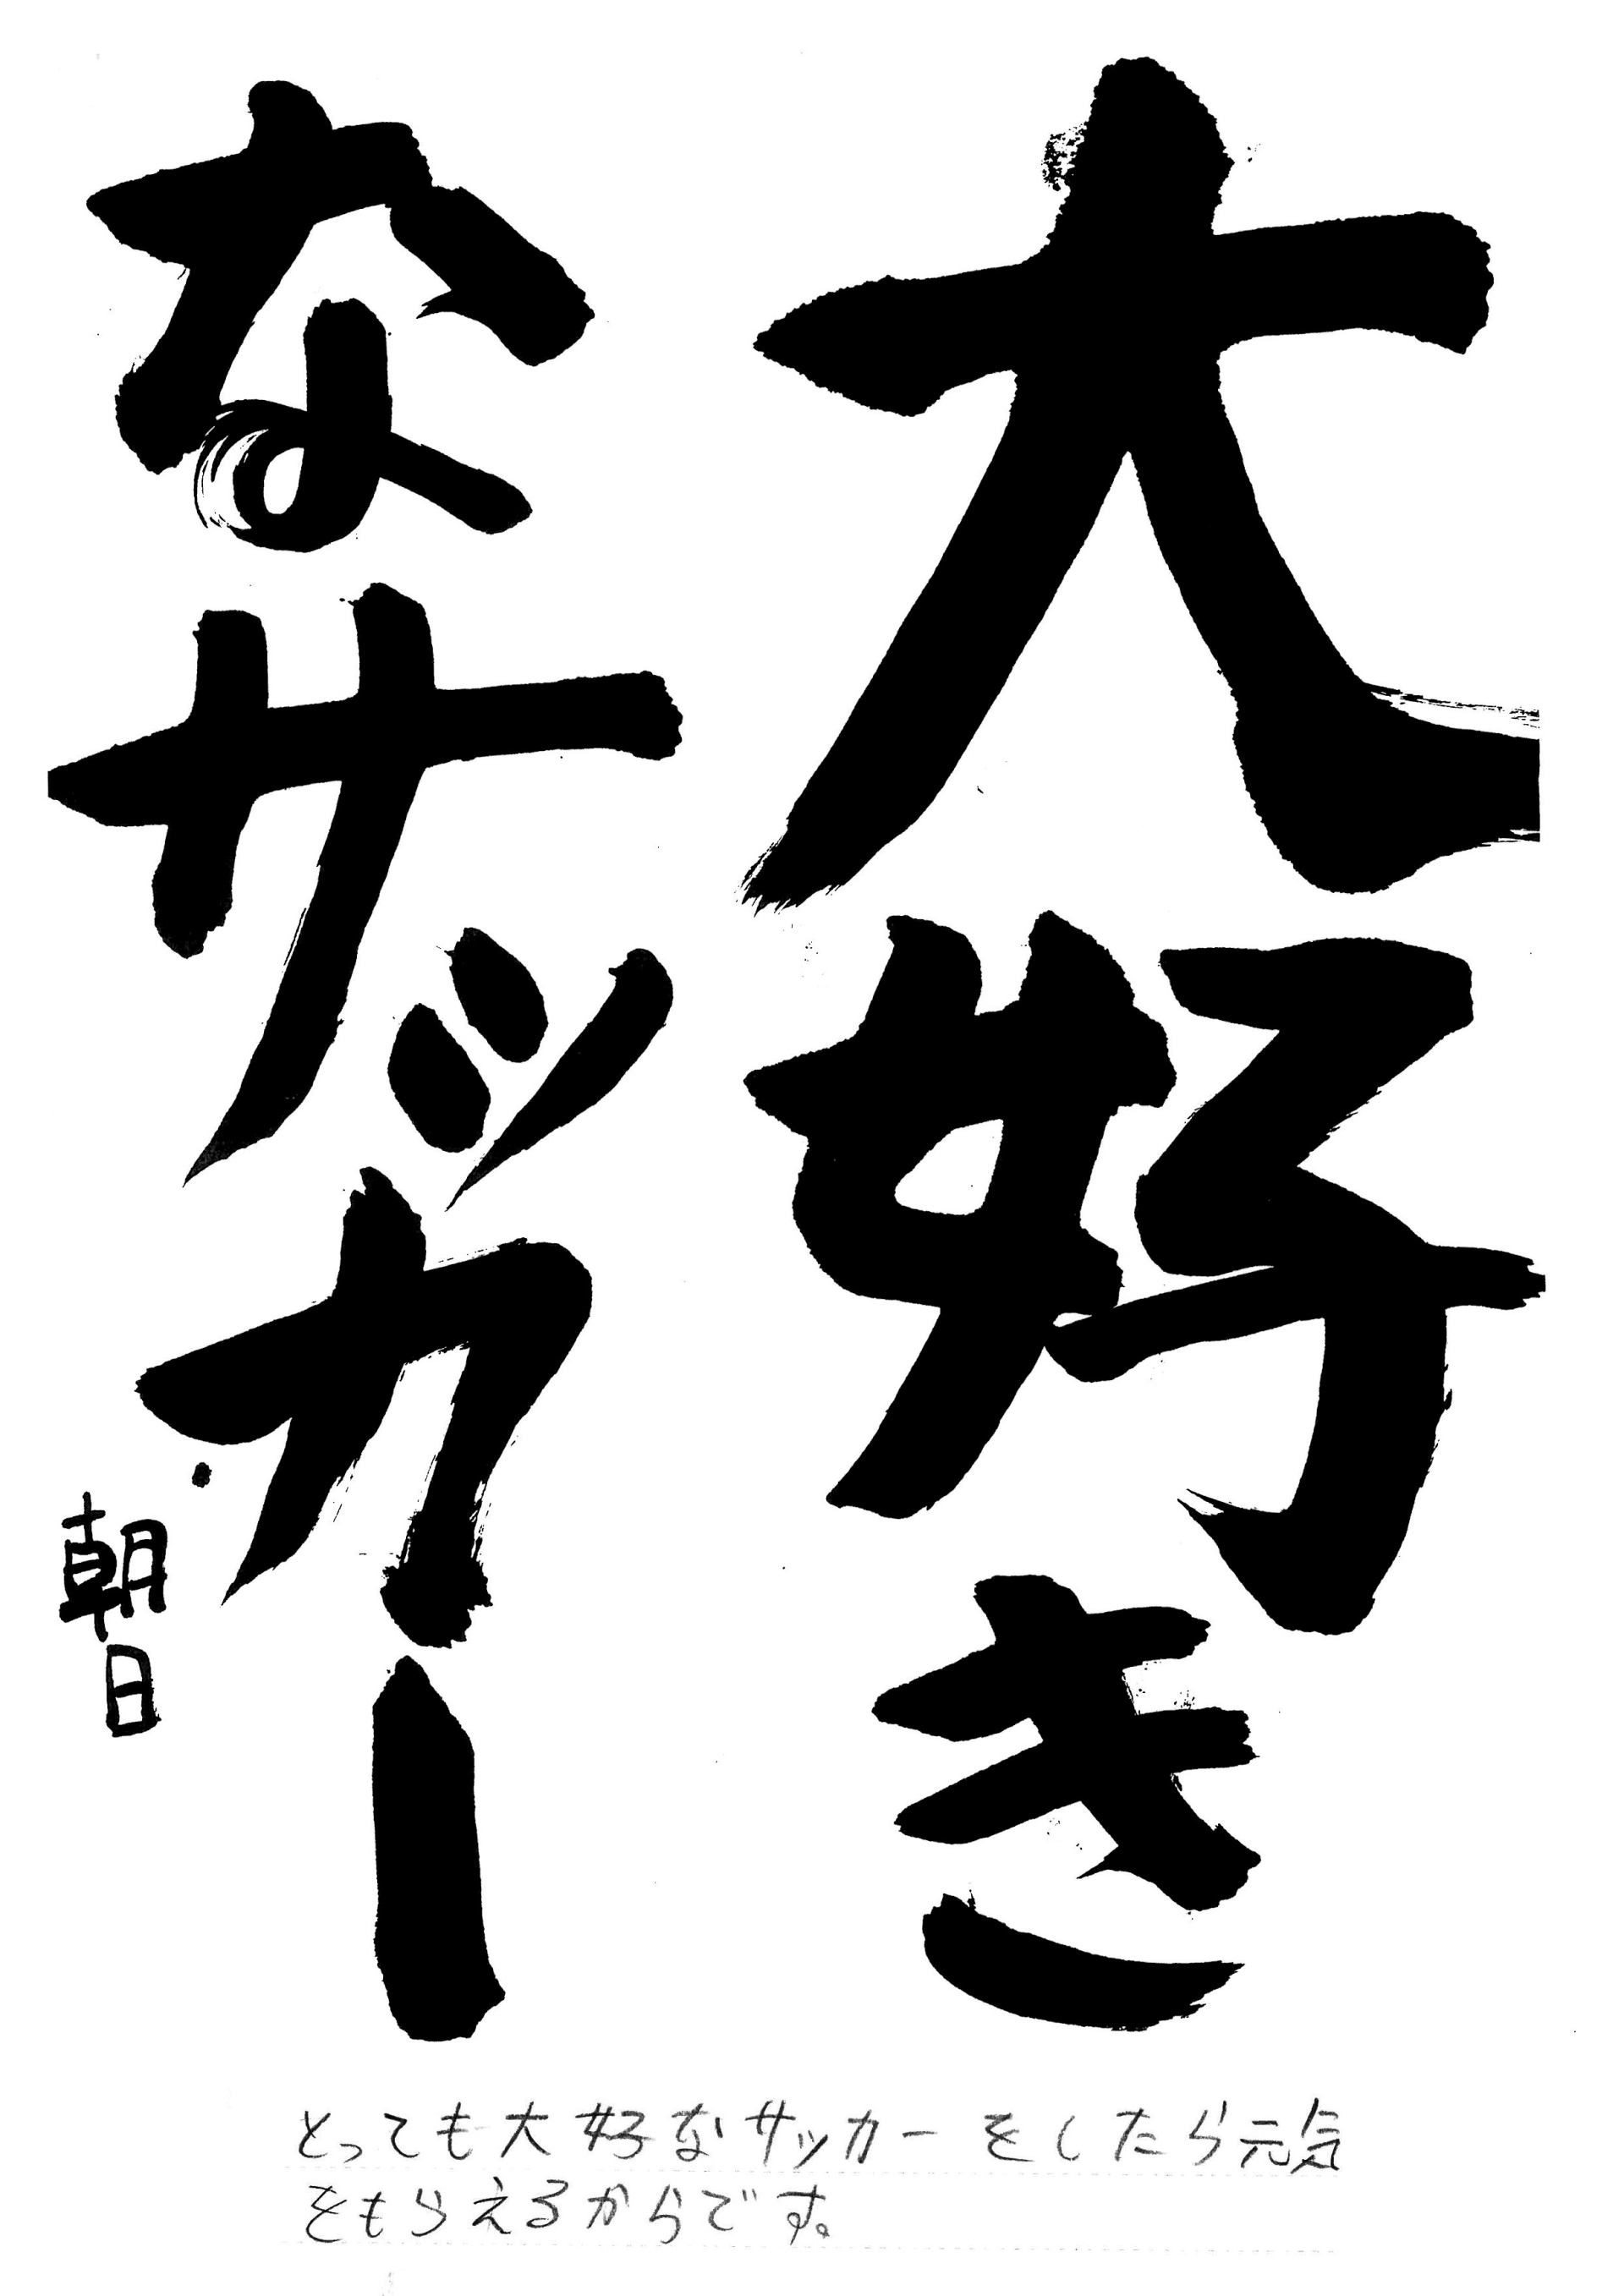 大好き
なサッカー
朝日
とっても大好なサッカーをしたら元気
をもらえるからです。